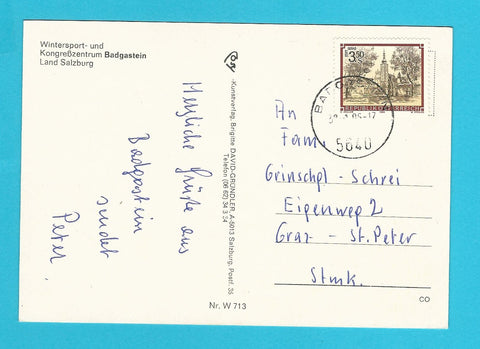 Wintersport- und
Kongreßzentrum Badgastein
Land Salzburg
Herzliche Grüße aus
Badgastein
sendet
Peter
-Kunstverlag, Brigitte DAVID-GRÜNDLER, A-5013 Salzburg, Postf. 35
Telefon (06 62) 34 3 24
Nr. W 713
3.50
REPUBLIK ÖSTERREICH
5640
An
Fam.
Grinschgl - Schrei
Eigenweg 2
Graz - St. Peter
Stmk.
CO